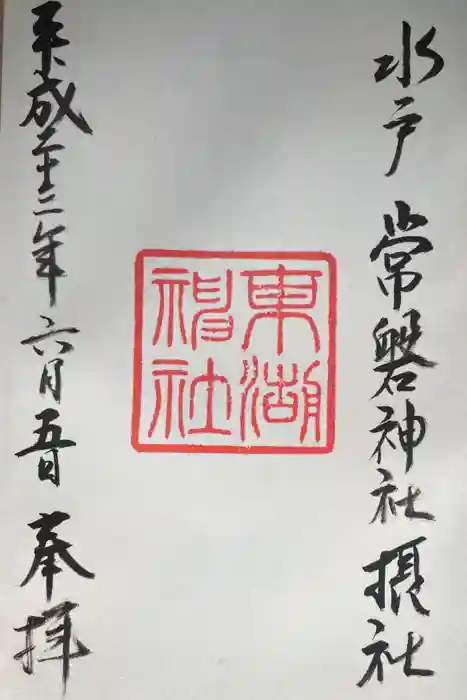 水戸 常磐神社 摂社
東湖
神社
平成二十三年六月五日 奉拝